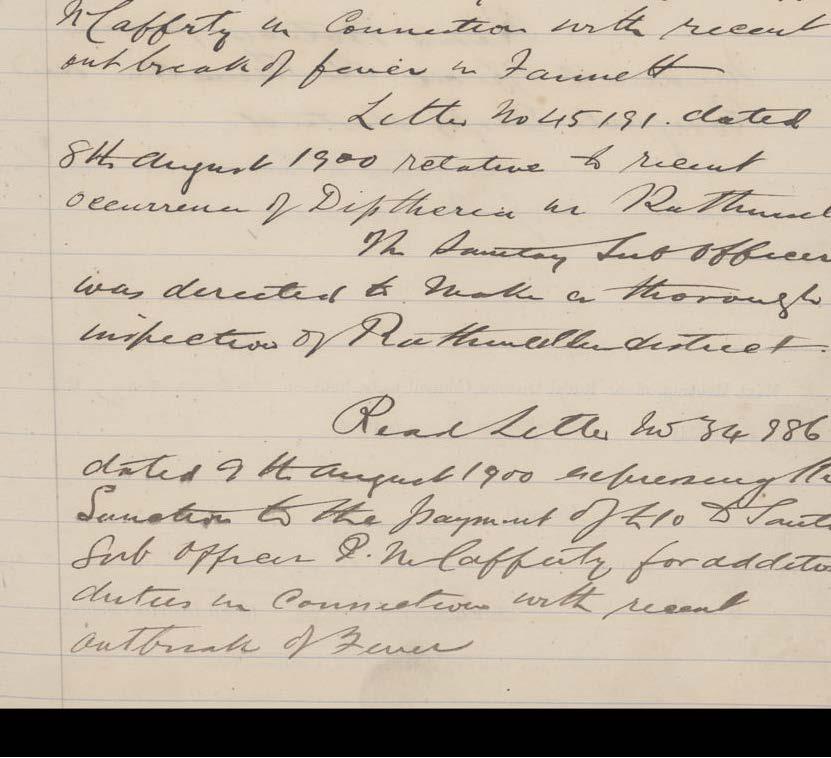 McCafferty in Connection with recent
outbreak of fever in Fannett
Letter No 45191. dated
8th August 1900 relative to recent
occurrence of Diptheria in Rathmul
The Sanitary Sub Officer
was directed to Make a thorough
inspection of Rathmullen district.
Read Letter No 34986
dated 9th August 1900 expressing the
Sanction to the payment of £10 to Sanit
Sub Officer P. McCafferty for additio
duties in Connection with recent
outbreak of Fever